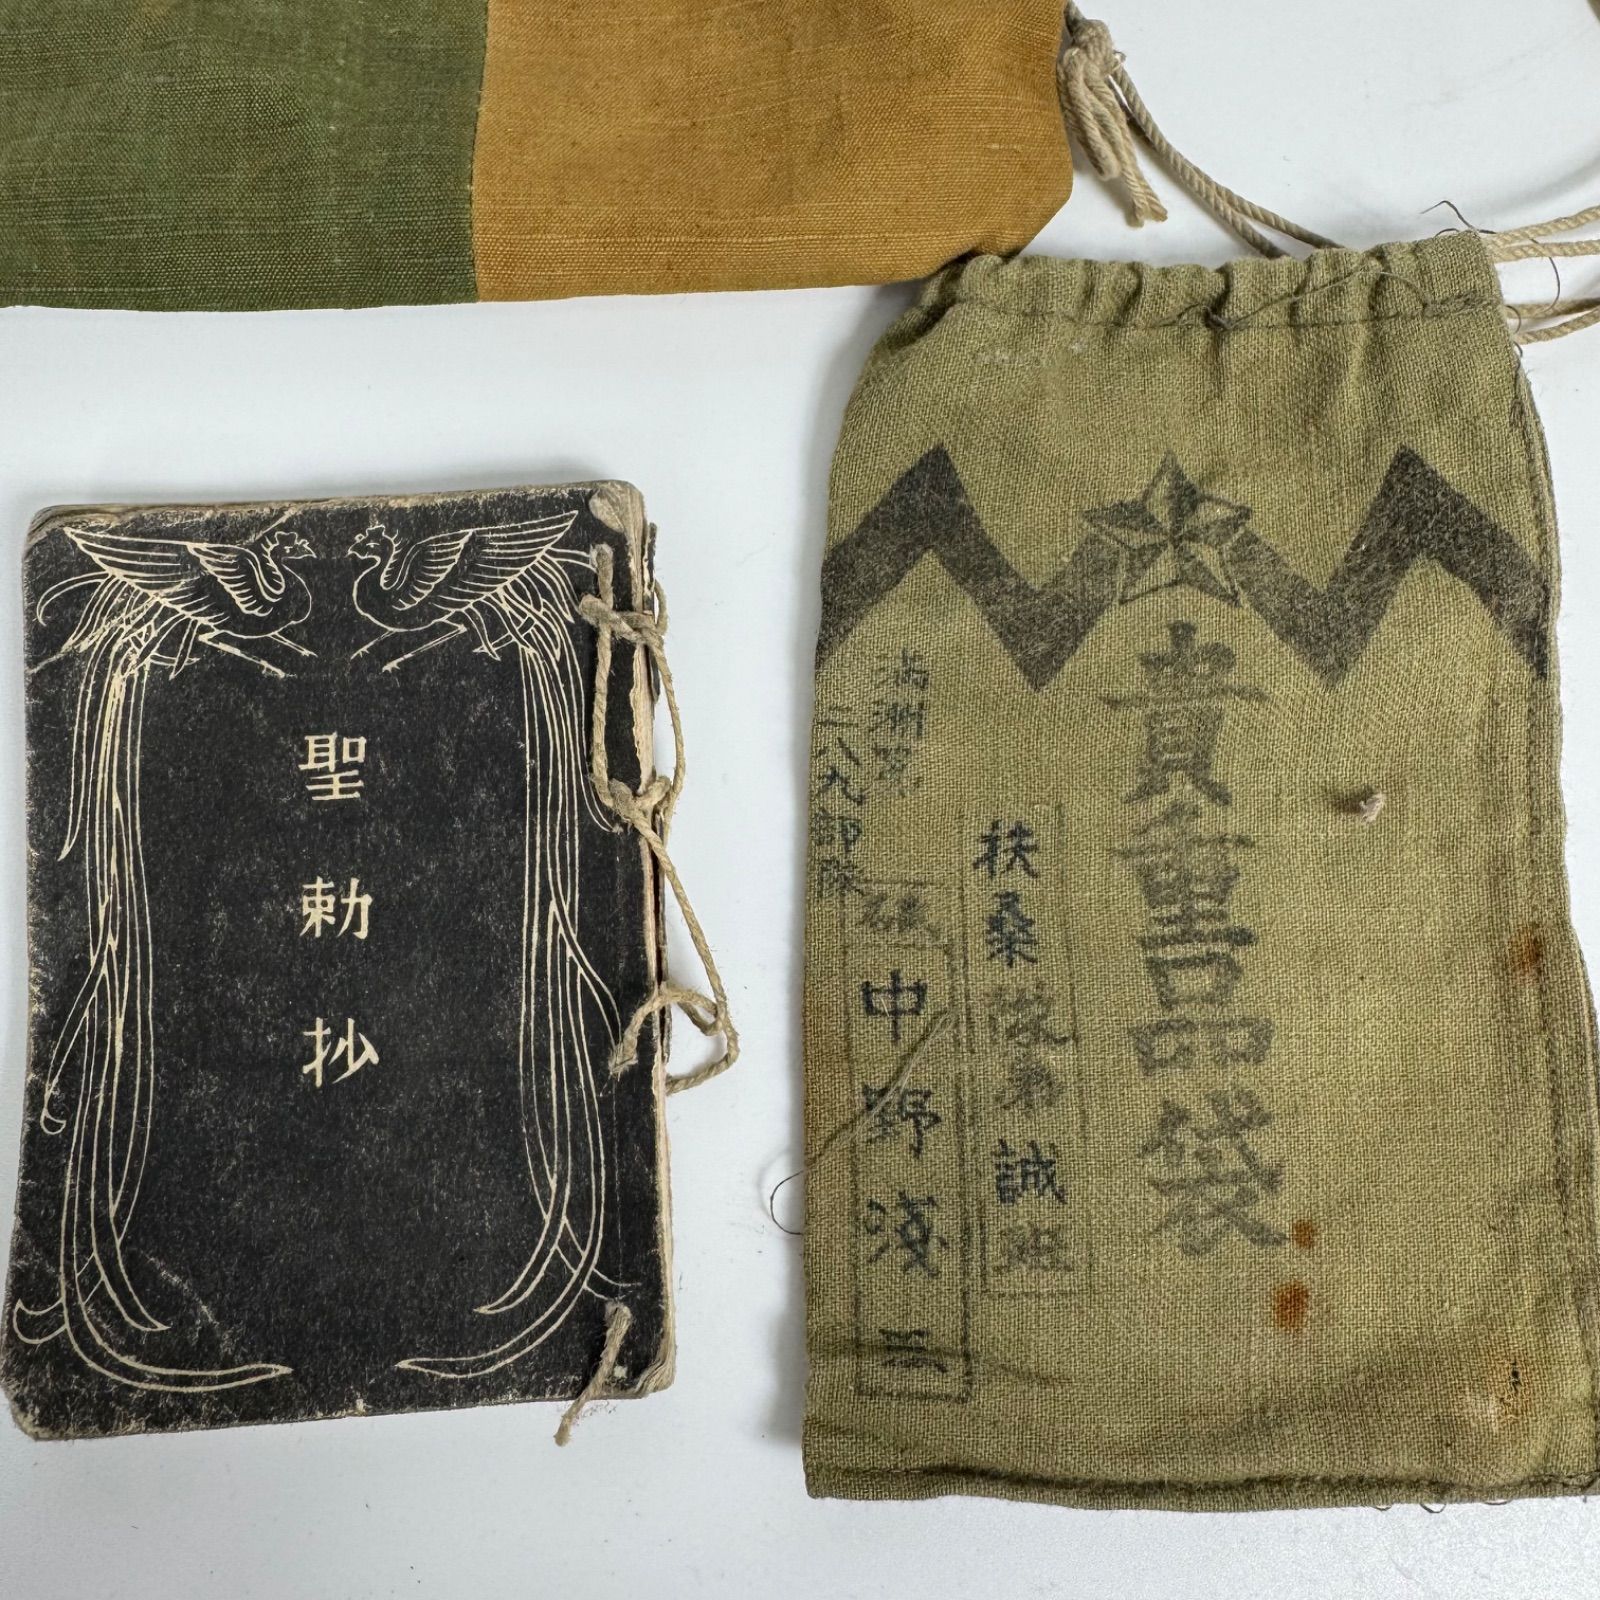 聖勅抄
貴重品袋
扶桑隊第誠班
満洲第
二八九部隊
中野浅三